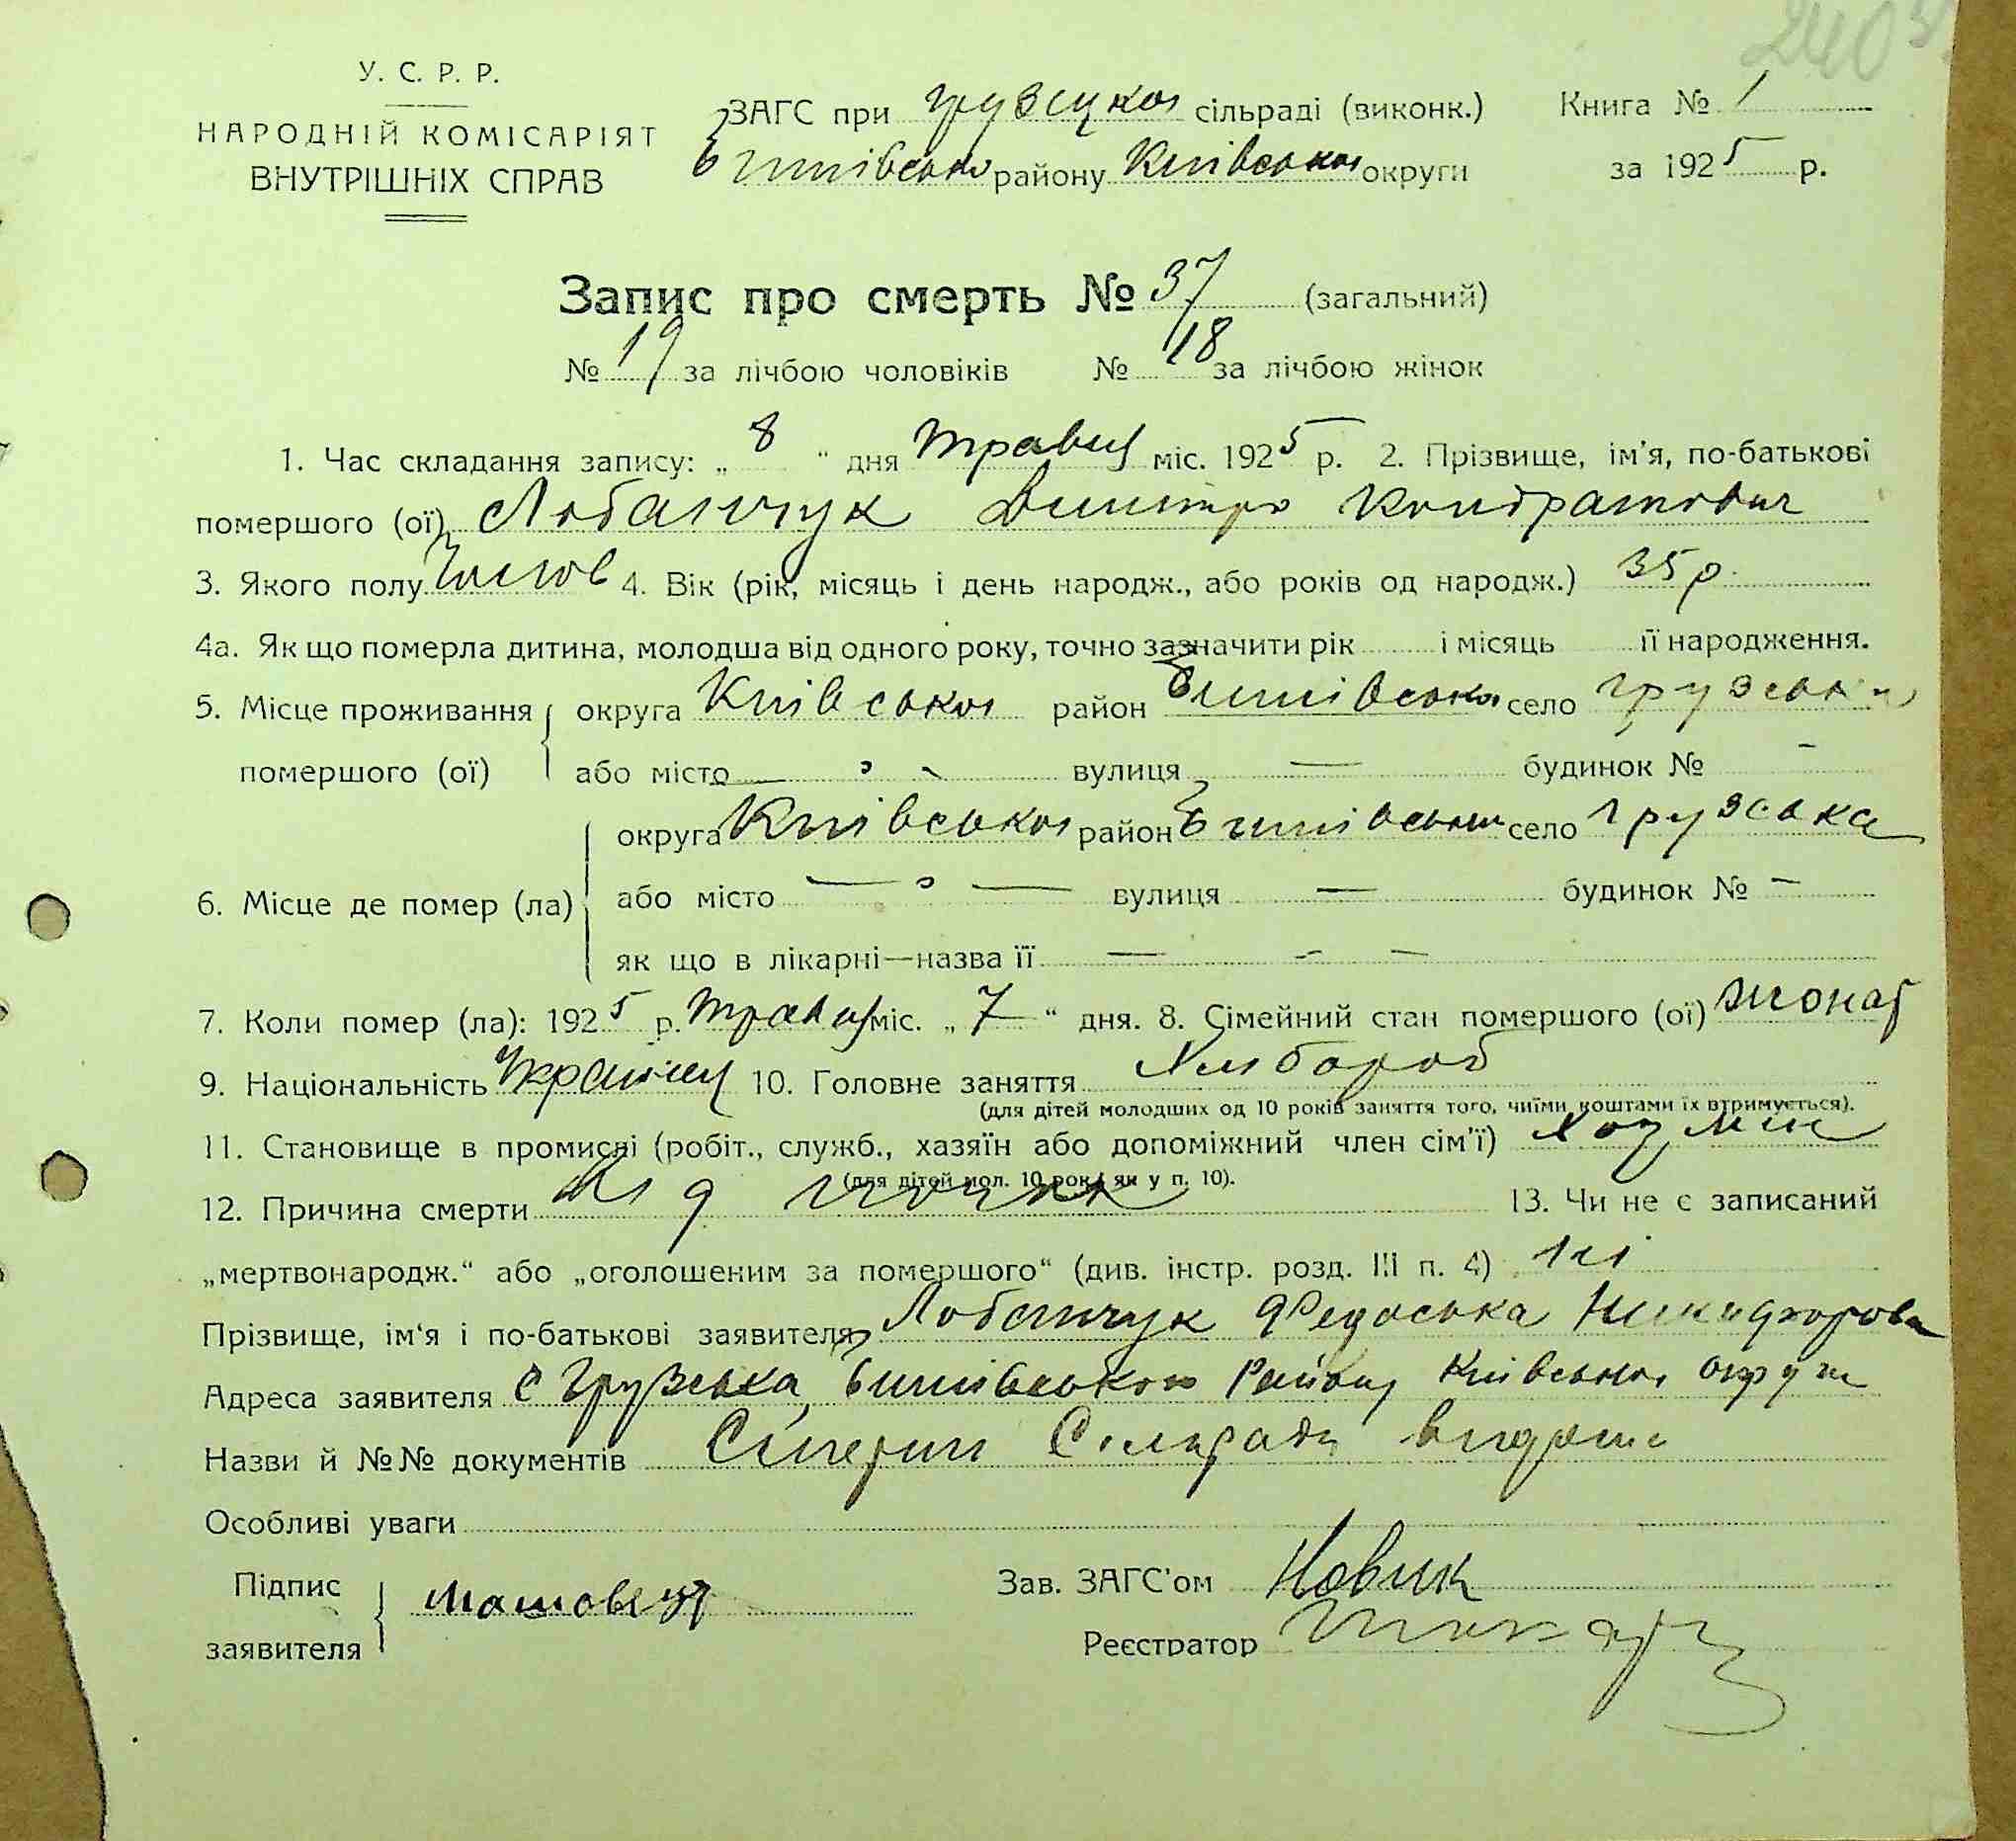 240
У. С. Р. Р.
НАРОДНІЙ КОМІСАРІЯТ
ВНУТРІШНІХ СПРАВ
ЗАГС при Грузської сільраді (виконк.) Книга № 1
Бишівсько району Київської округи за 1925 р.
Запис про смерть № 37 (загальний)
№ 19 за лічбою чоловіків № 18 за лічбою жінок
1. Час складання запису: „ 8 “ дня травня міс. 1925 р. 2. Прізвище, ім'я, по-батькові
помершого (ої) Лобанчук Дмитро Кондратович
3. Якого полу чолов 4. Вік (рік, місяць і день народж., або років од народж.) 35 р.
4а. Як що померла дитина, молодша від одного року, точно зазначити рік і місяць її народження.
5. Місце проживання округа Київської район Бишівсько село Грузська
помершого (ої) або місто — " — вулиця — будинок № -
округа Київської район Бишівськи село Грузська
6. Місце де помер (ла) або місто — " — вулиця — будинок № -
як що в лікарні—назва її — - —
7. Коли помер (ла): 1925 р. травня міс. „ 7 “ дня. 8. Сімейний стан помершого (ої) жонат
9. Національність Українец 10. Головне заняття Хлибороб
(для дітей молодших од 10 років заняття того, чиїми коштами їх втримується).
11. Становище в промислі (робіт., служб., хазяїн або допоміжний член сім'ї)
(для дітей мол. 10 рок. як у п. 10).
12. Причина смерти 13. Чи не є записаний
„мертвонародж.“ або „оголошеним за помершого“ (див. інстр. розд. III п. 4) ні
Прізвище, ім‘я і по-батькові заявителя Лобанчук Федоська Никифорова
Адреса заявителя с Грузська, Бишівського Району Київської округи
Назви й №№ документів Сільради
Особливі уваги
Підпис Зав. ЗАГС'ом Новик
заявителя Реєстратор